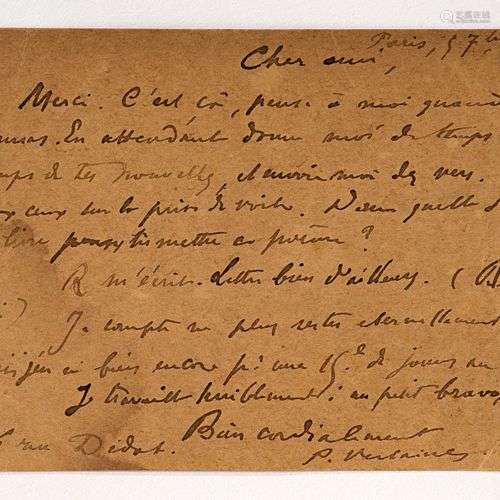 Paris, 5 7b
Cher ami,
Merci. C'est çà, pense à moi quand
En attendant donne moi de temps
de tes nouvelles, et envoie moi des vers.
ceux sur la prise de voile. Dans quelle
penses tu mettre ce poème ?
R m'écrit. Lettre bien d'ailleurs. (
Je compte ne plus rester éternellement
en bien encore pr. une 15e de jours au
Je travaille : au petit
Didot. Bien cordialement
P. Verlaine